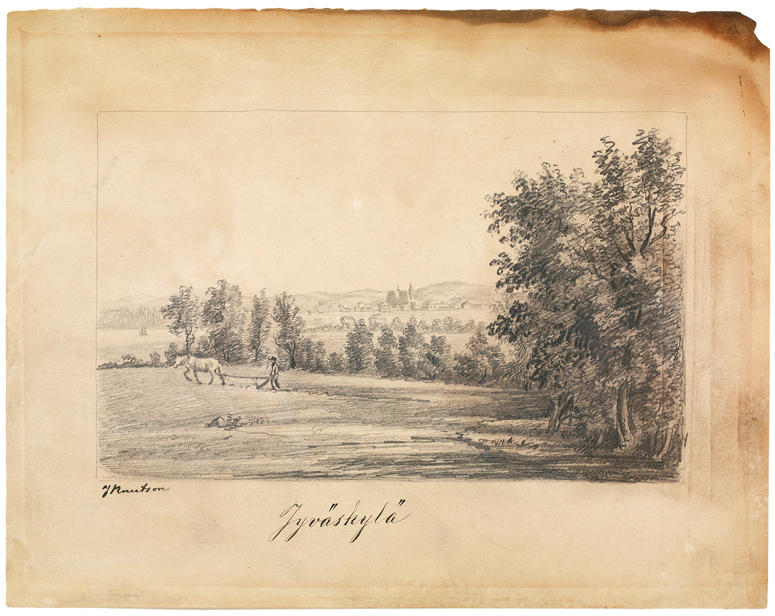 J Knutson
Jyväskylä